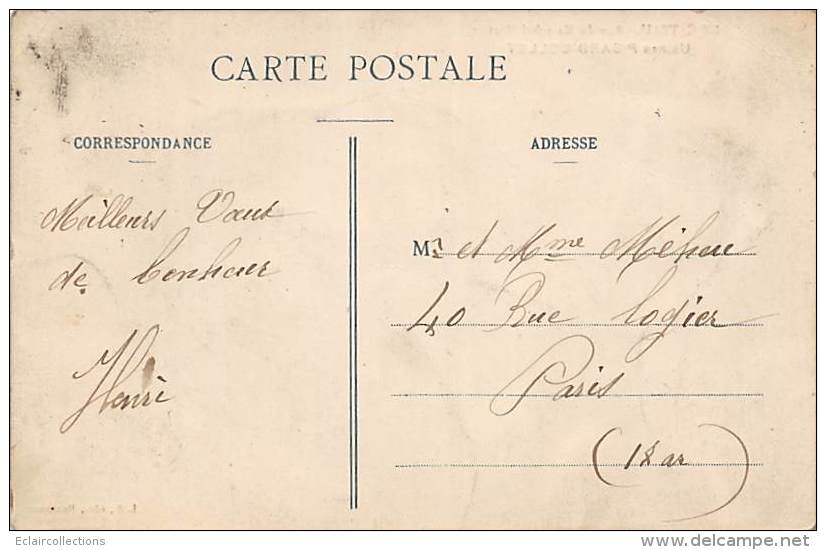 CARTE POSTALE
CORRESPONDANCE
ADRESSE
Meilleurs Vœux
de bonheur
Henri
Mr et Mme Méheu
40 Rue Logier
Paris
(18 ar)
Eclaircollections
www.delcampe.net